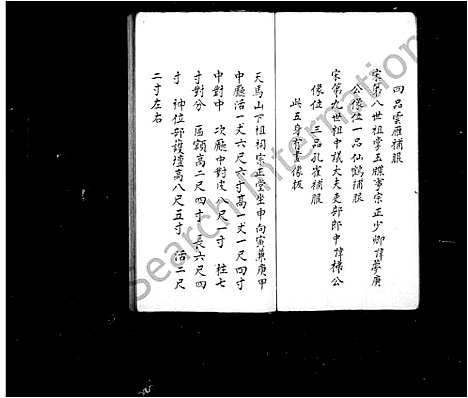 四品雲雁補服
宋第八世祖掌玉牒事宗正少卿諱夢庚
公像位一品仙鶴補服
宋第九世祖中議大夫吏部郎中諱梯公
像位 三品孔雀補服
共五身有書像板
天馬山下祖祠宗正堂坐申向寅兼庚甲
中廳活一丈六尺六寸高一丈一尺四寸
中對中 次廳中對皮八尺一寸 柱七
寸對分 區額高二尺四寸 長六尺四
寸 神位部護壇高八尺五寸 活二尺
二寸左右
Search International